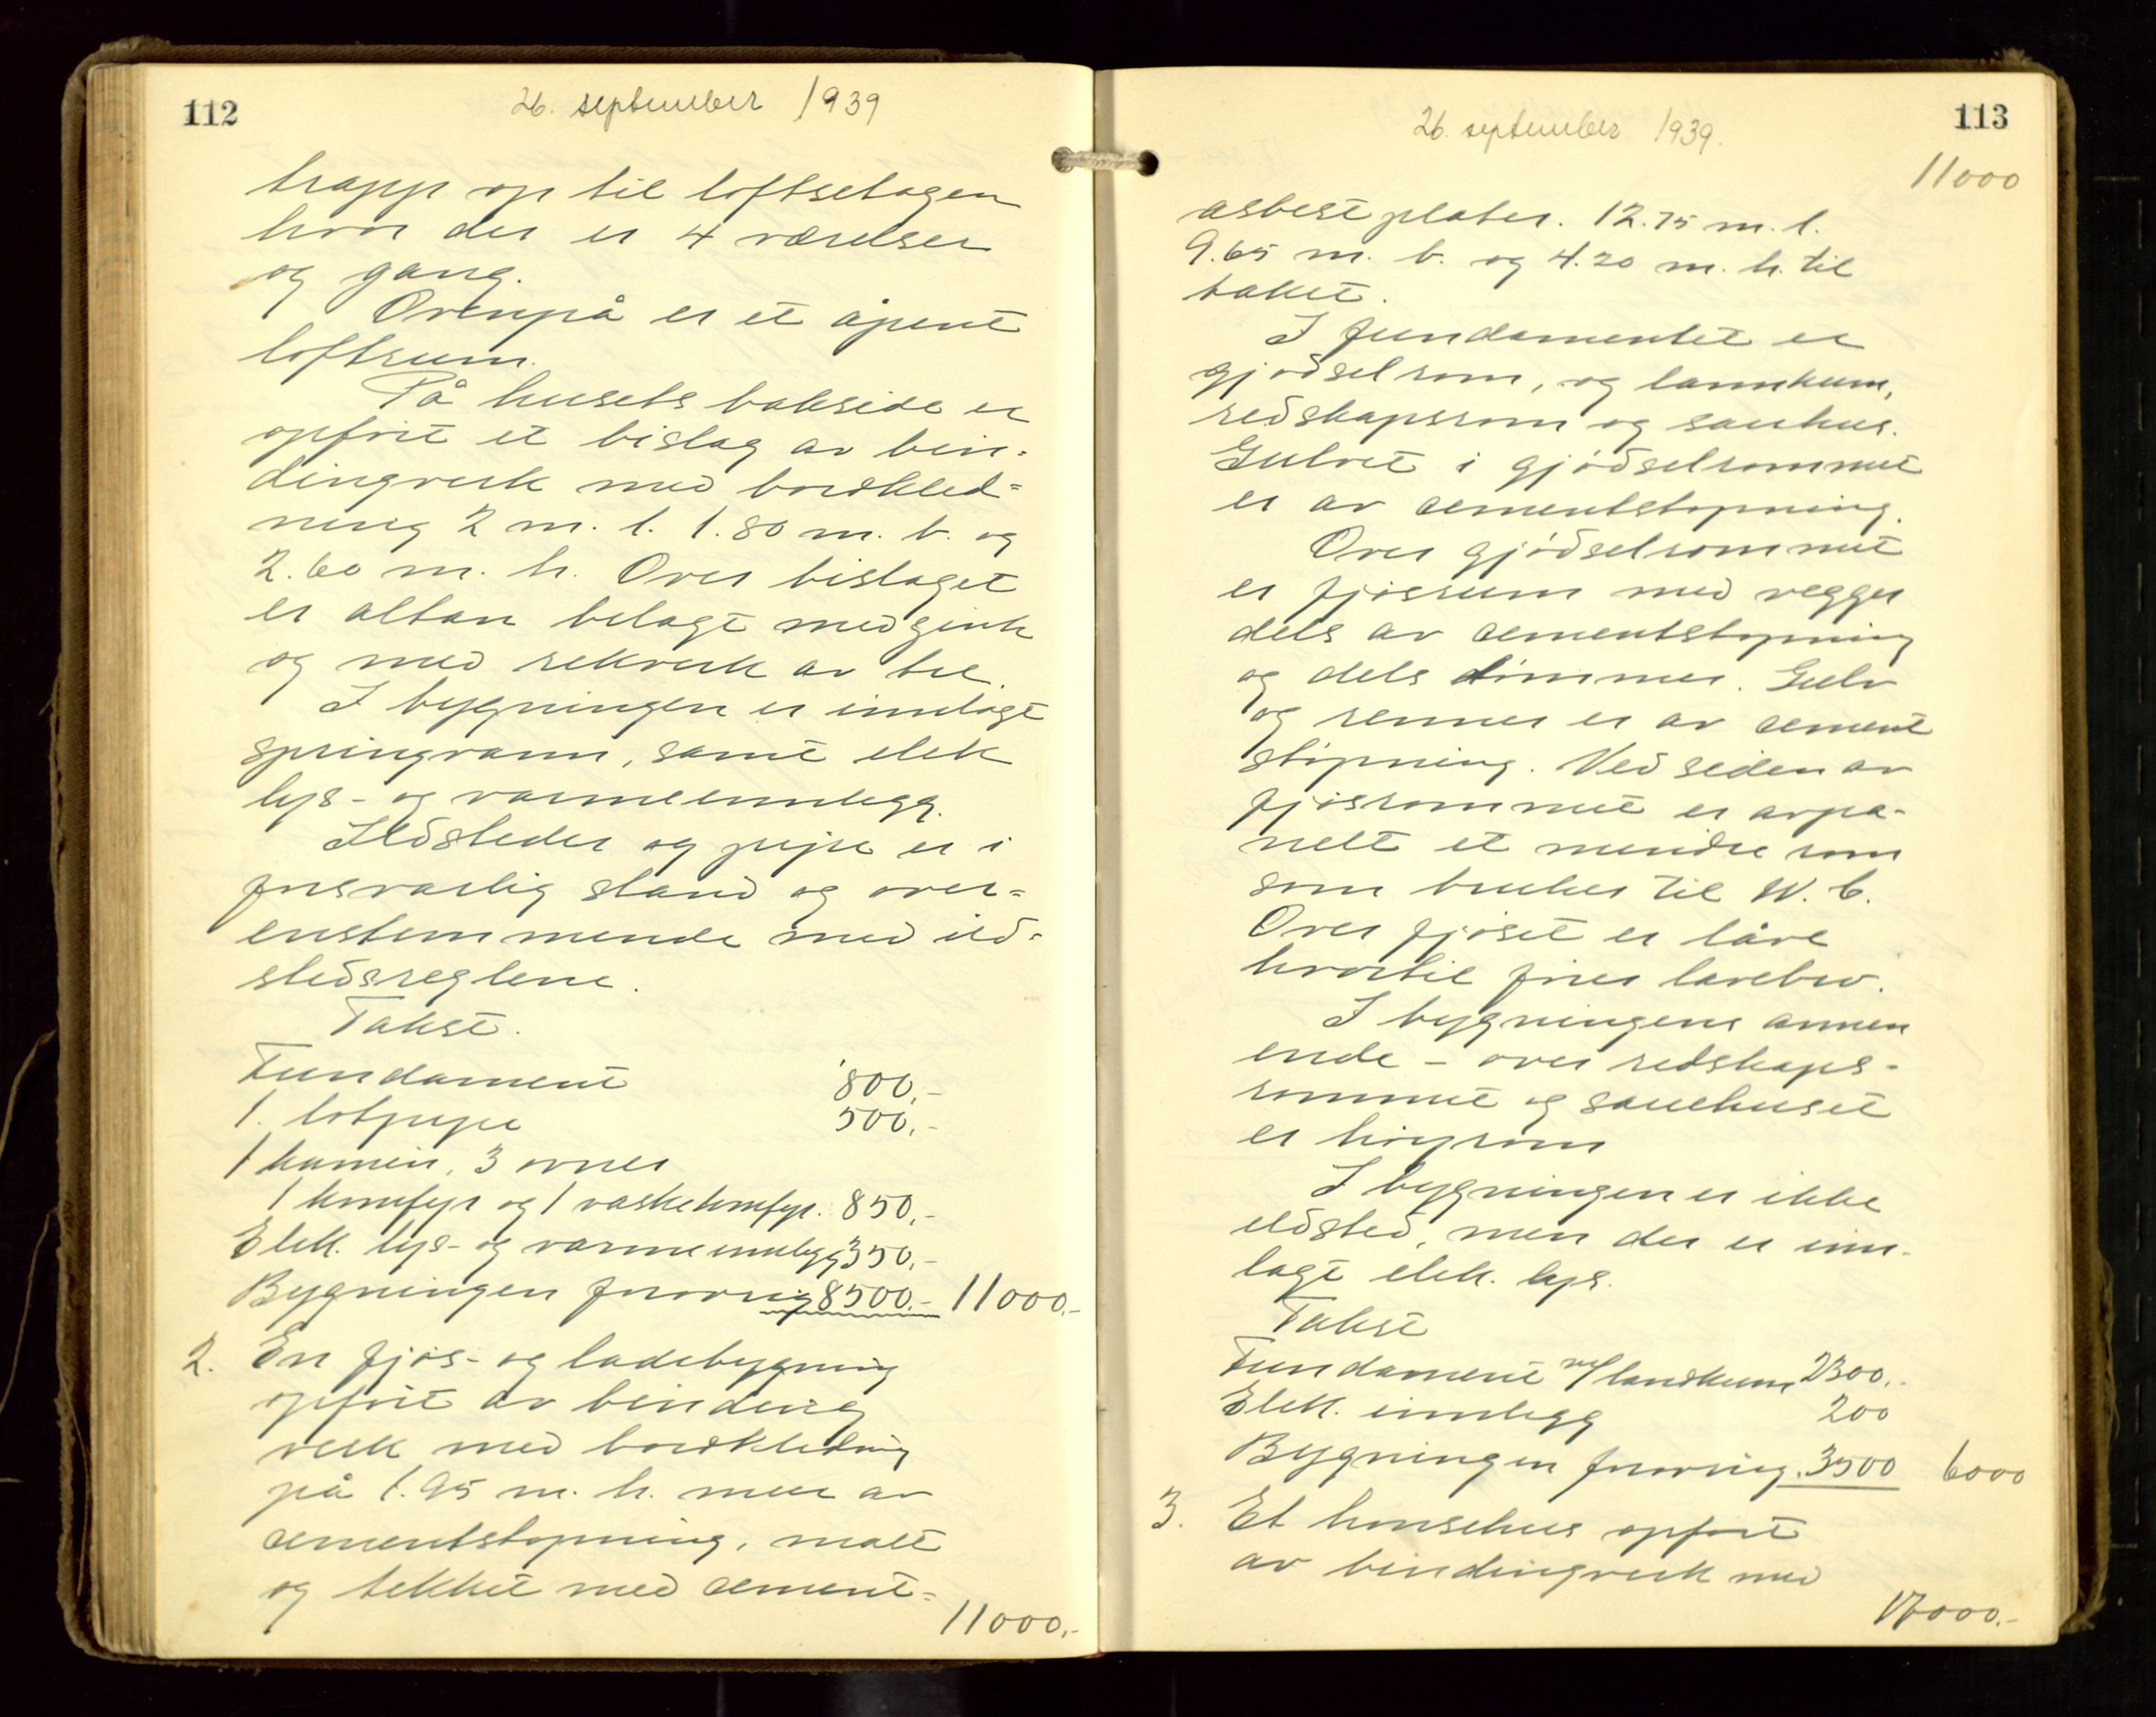 112
26. september 1939
trapp op til loftsetagen
hvor der er 4 værelser
og gang.
Ovenpå er et åpent
loftsrum.
På husets bakside er
opført et bislag av bin-
dingverk med bordkled-
ning 2 m. l. 1.80 m. b. og
2.60 m. h. Over bislaget
er altan belagt med zink
og med rekverk av tre.
I bygningen er innlagt
springvann, samt elek
lys- og varmeinnlegg.
Ildsteder og pipe er i
forsvarlig stand og over-
enstemmende med ild-
stedsreglene.
Takst.
Fundament 800,-
1. lotpipe 500,-
1 kamin, 3 ovner
1 komfyr og 1 vaskekomfyr. 850,-
Elek. lys- og varmeinnlegg 350,-
Bygningen forøvrig 8500.- 11000,-
2. En fjøs- og ladebygning
opført av binding
verk med bordkledning
på 1.95 m. h. mur av
cementstøpning, malt
og tekket med cement-
11000,-
113
26. september 1939.
11000
asbest plater. 12.75 m. l.
9.65 m. b. og 4.20 m. h. til
taket.
I fundamentet er
gjødselrom, og lannkum,
redskapsrom og sauhus.
Gulvet i gjødselrommet
er av cementstøpning.
Over gjødselrommet
er fjøsrum med vegger
dels av cementstøpning
og dels tømmer. Gulv
og renner er av cement
støpning. Ved siden av
fjøsrommet er avpa-
nelt et mindre rom
som brukes til W. C.
Over fjøset er låve
hvortil fører lavebro.
I bygningens annen
ende - over redskaps-
rommet og sauehuset
er høyrom
I bygningen er ikke
ildsted, men der er inn-
lagt elek. lys.
Takst
Fundament m/ landkum 2300.-
Elek. innlegg 200
Bygningen forøvrig. 3500 6000
3. Et hønsehus opført
av bindingverk med
17000.-